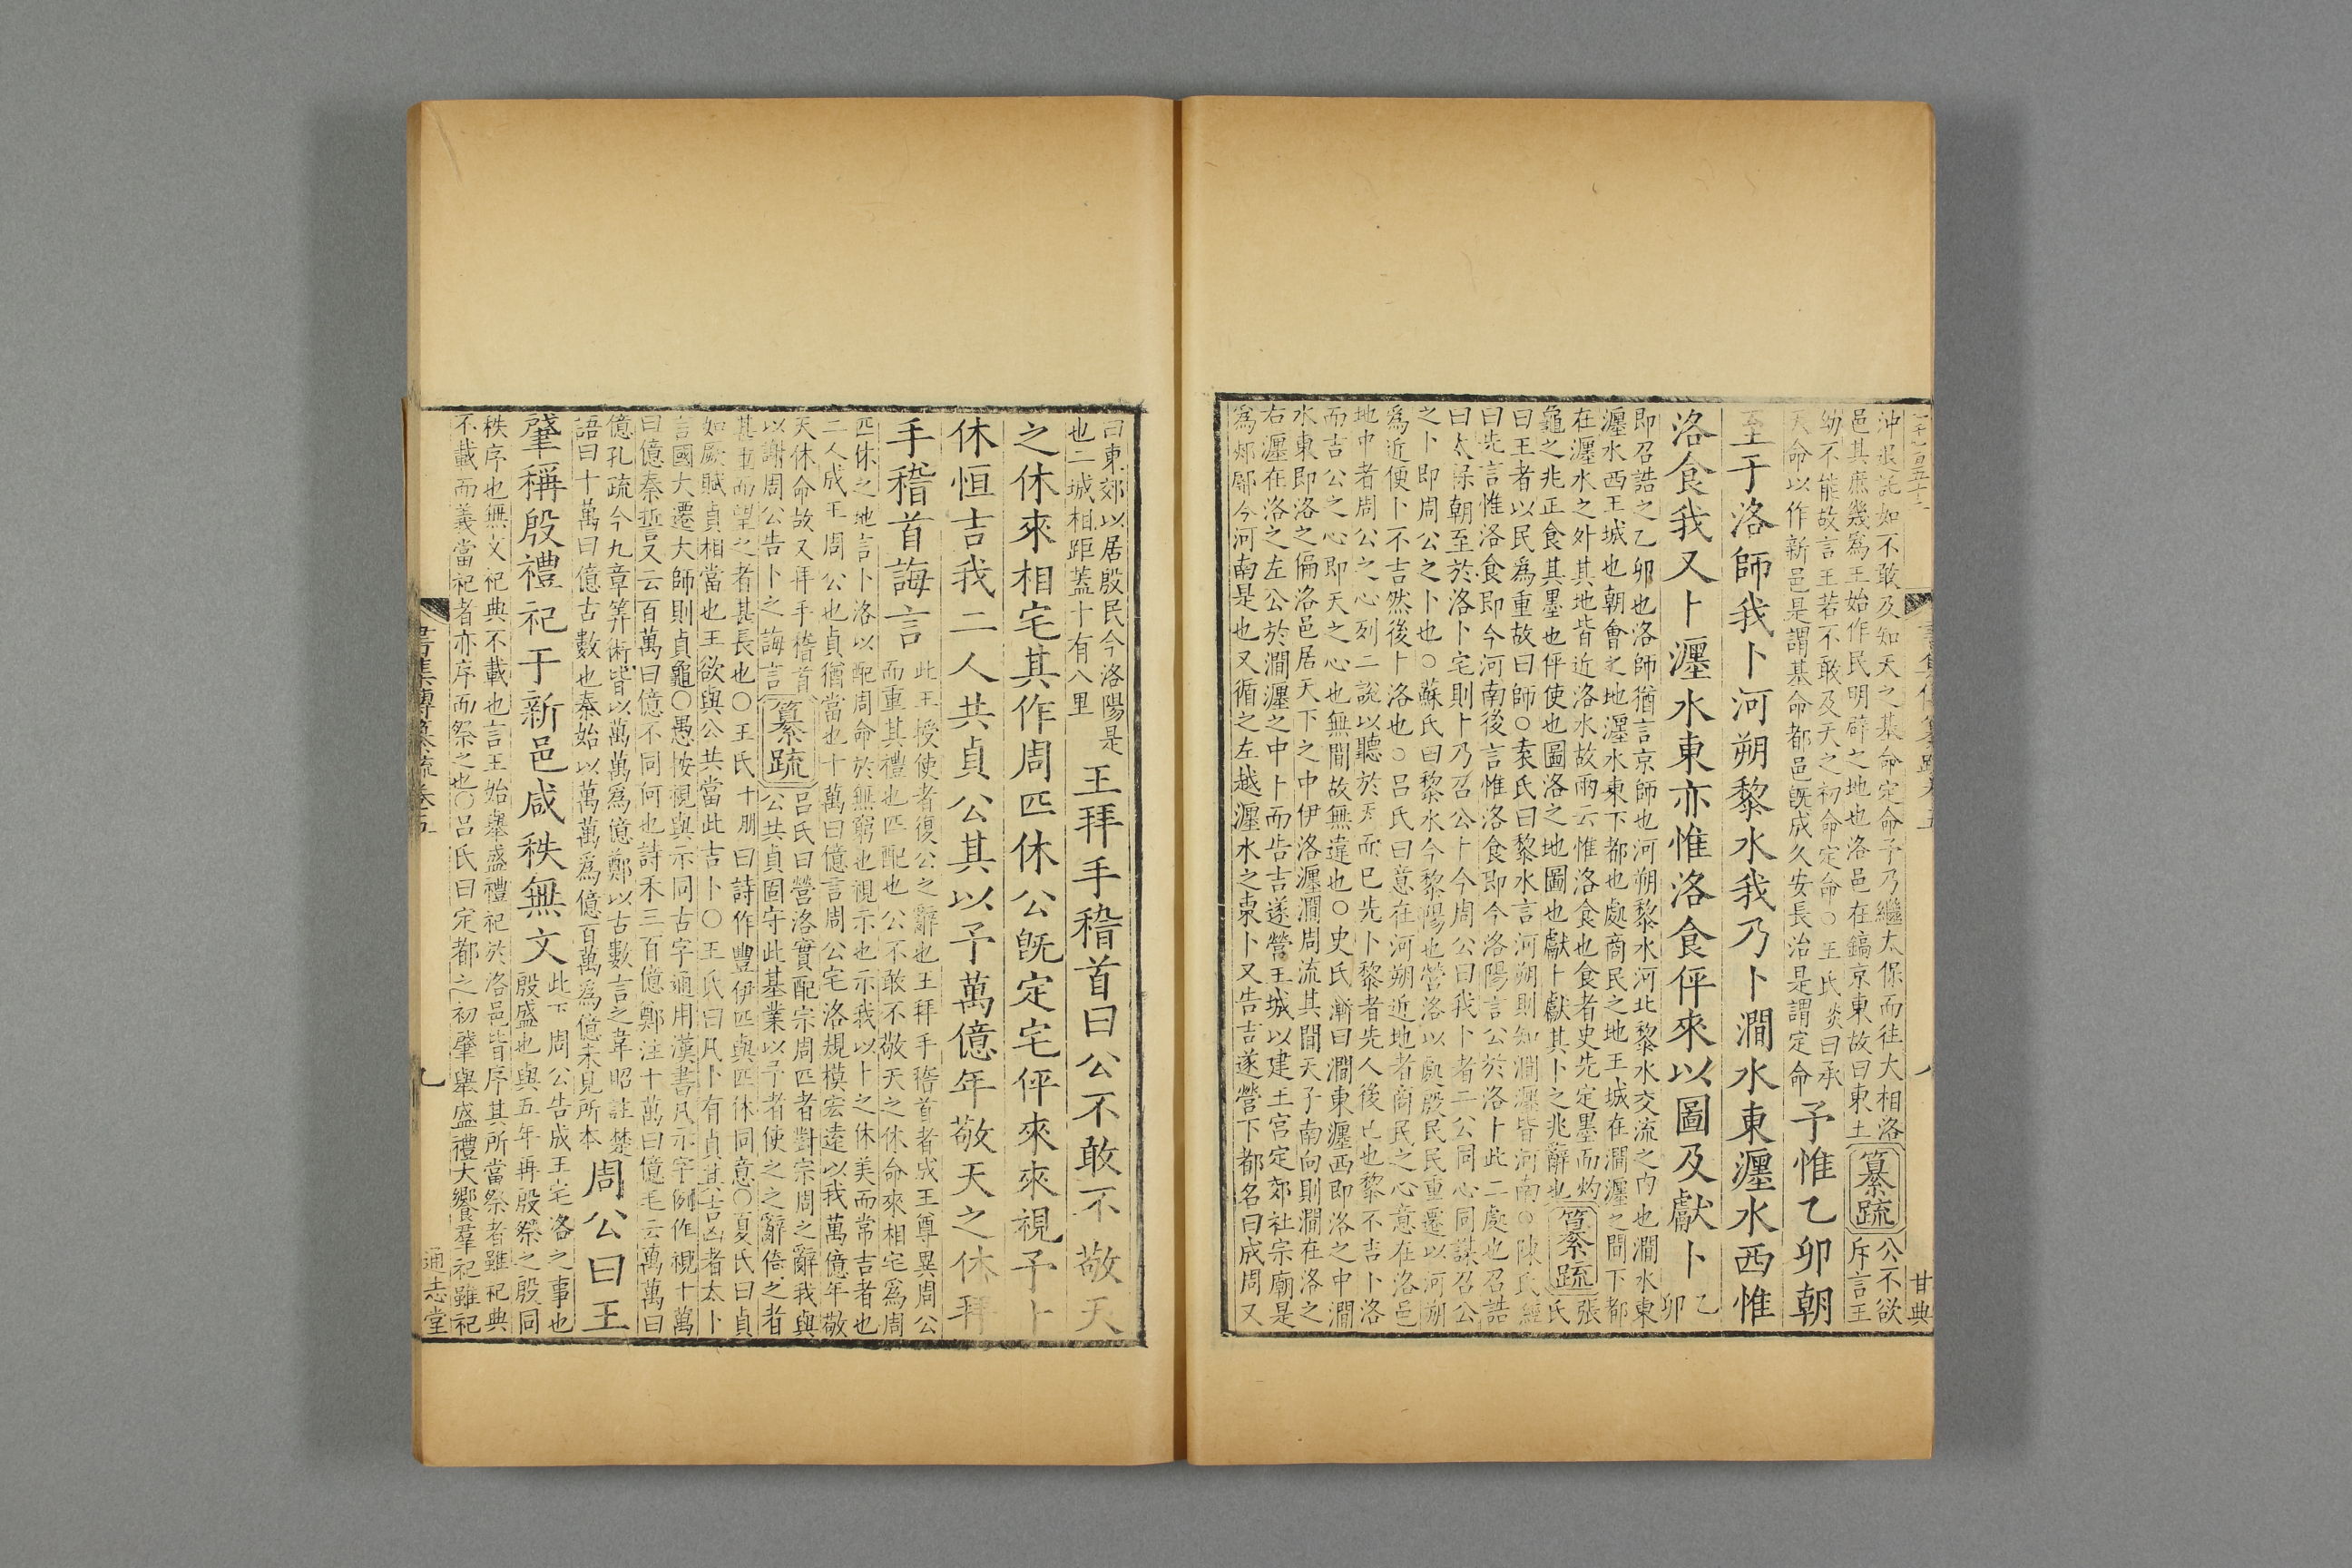 沖退託如不敢及知天之基命定命予乃繼太保而往大相洛
邑其庶幾爲王始作民明辟之地也洛邑在鎬京東故曰東土
纂疏
公不欲
斥言王
幼不能故言王若不敢及天之初命定命○王氏炎曰承
天命以作新邑是謂基命都邑旣成久安長治是謂定命
予惟乙卯朝
至于洛師我卜河朔黎水我乃卜澗水東瀍水西惟
洛食我又卜瀍水東亦惟洛食伻來以圖及獻卜
乙
卯
即召誥之乙卯也洛師猶言京師也河朔黎水河北黎水交流之內也澗水東
瀍水西王城也朝會之地瀍水東下都也處商民之地王城在澗瀍之間下都
在瀍水之外其地皆近洛水故兩云惟洛食也食者史先定墨而灼
龜之兆正食其墨也伻使也圖洛之地圖也獻卜獻其卜之兆辭也
纂疏
張
氏
曰王者以民爲重故曰師○袁氏曰黎水言河朔則知澗瀍皆河南○陳氏經
曰先言惟洛食即今河南後言惟洛食即今洛陽言公於洛卜此二處也召誥
曰太保朝至於洛卜宅則卜乃召公卜今周公曰我卜者二公同心同謀召公
之卜即周公之卜也○蘇氏曰黎水今黎陽也營洛以處殷民民重遷以河朔
爲近便卜不吉然後卜洛也○呂氏曰意在河朔近地者商民之心意在洛邑
地中者周公之心列二說以聽於天而已先卜黎者先人後己也黎不吉卜洛
而吉公之心即天之心也無間故無違也○史氏漸曰澗東瀍西即洛之中澗
水東即洛之偏洛邑居天下之中伊洛瀍澗周流其間天子南向則澗在洛之
右瀍在洛之左公於澗瀍之中卜而告吉遂營王城以建王宮定郊社宗廟是
爲郟鄏今河南是也又循之左越瀍水之東卜又告吉遂營下都名曰成周又
曰東郊以居殷民今洛陽是
也二城相距蓋十有八里
王拜手稽首曰公不敢不敬天
之休來相宅其作周匹休公旣定宅伻來來視予卜
休恒吉我二人共貞公其以予萬億年敬天之休拜
手稽首誨言
此王授使者復公之辭也王拜手稽首者成王尊異周公
而重其禮也匹配也公不敢不敬天之休命來相宅爲周
匹休之地言卜洛以配周命於無窮也視示也示我以卜之休美而常吉者也
二人成王周公也貞猶當也十萬曰億言周公宅洛規模宏遠以我萬億年敬
天休命故又拜手稽首
以謝周公告卜之誨言
纂疏
呂氏曰營洛實配宗周匹者對宗周之辭我與
公共貞固守此基業以予者使之之辭倚之者
甚重而望之者甚長也○王氏十朋曰詩作豐伊匹與匹休同意○夏氏曰貞
如厥賦貞相當也王欲與公共當此吉卜○王氏曰凡卜有貞其吉凶者太卜
言國大遷大師則貞龜○愚按視與示同古字通用漢書凡示字例作視十萬
曰億秦誓又云百萬曰億不同何也詩禾三百億鄭注十萬曰億毛云萬萬曰
億孔疏今九章筭術皆以萬萬爲億鄭以古數言之韋昭註楚
語曰十萬曰億古數也秦始以萬萬爲億百萬爲億未見所本
周公曰王
肇稱殷禮祀于新邑咸秩無文
此下周公告成王宅洛之事也
殷盛也與五年再殷祭之殷同
秩序也無文祀典不載也言王始舉盛禮祀於洛邑皆序其所當祭者雖祀典
不載而義當祀者亦序而祭之也○呂氏曰定都之初肇舉盛禮大饗羣祀雖祀
書集傳纂疏卷五
九
通志堂